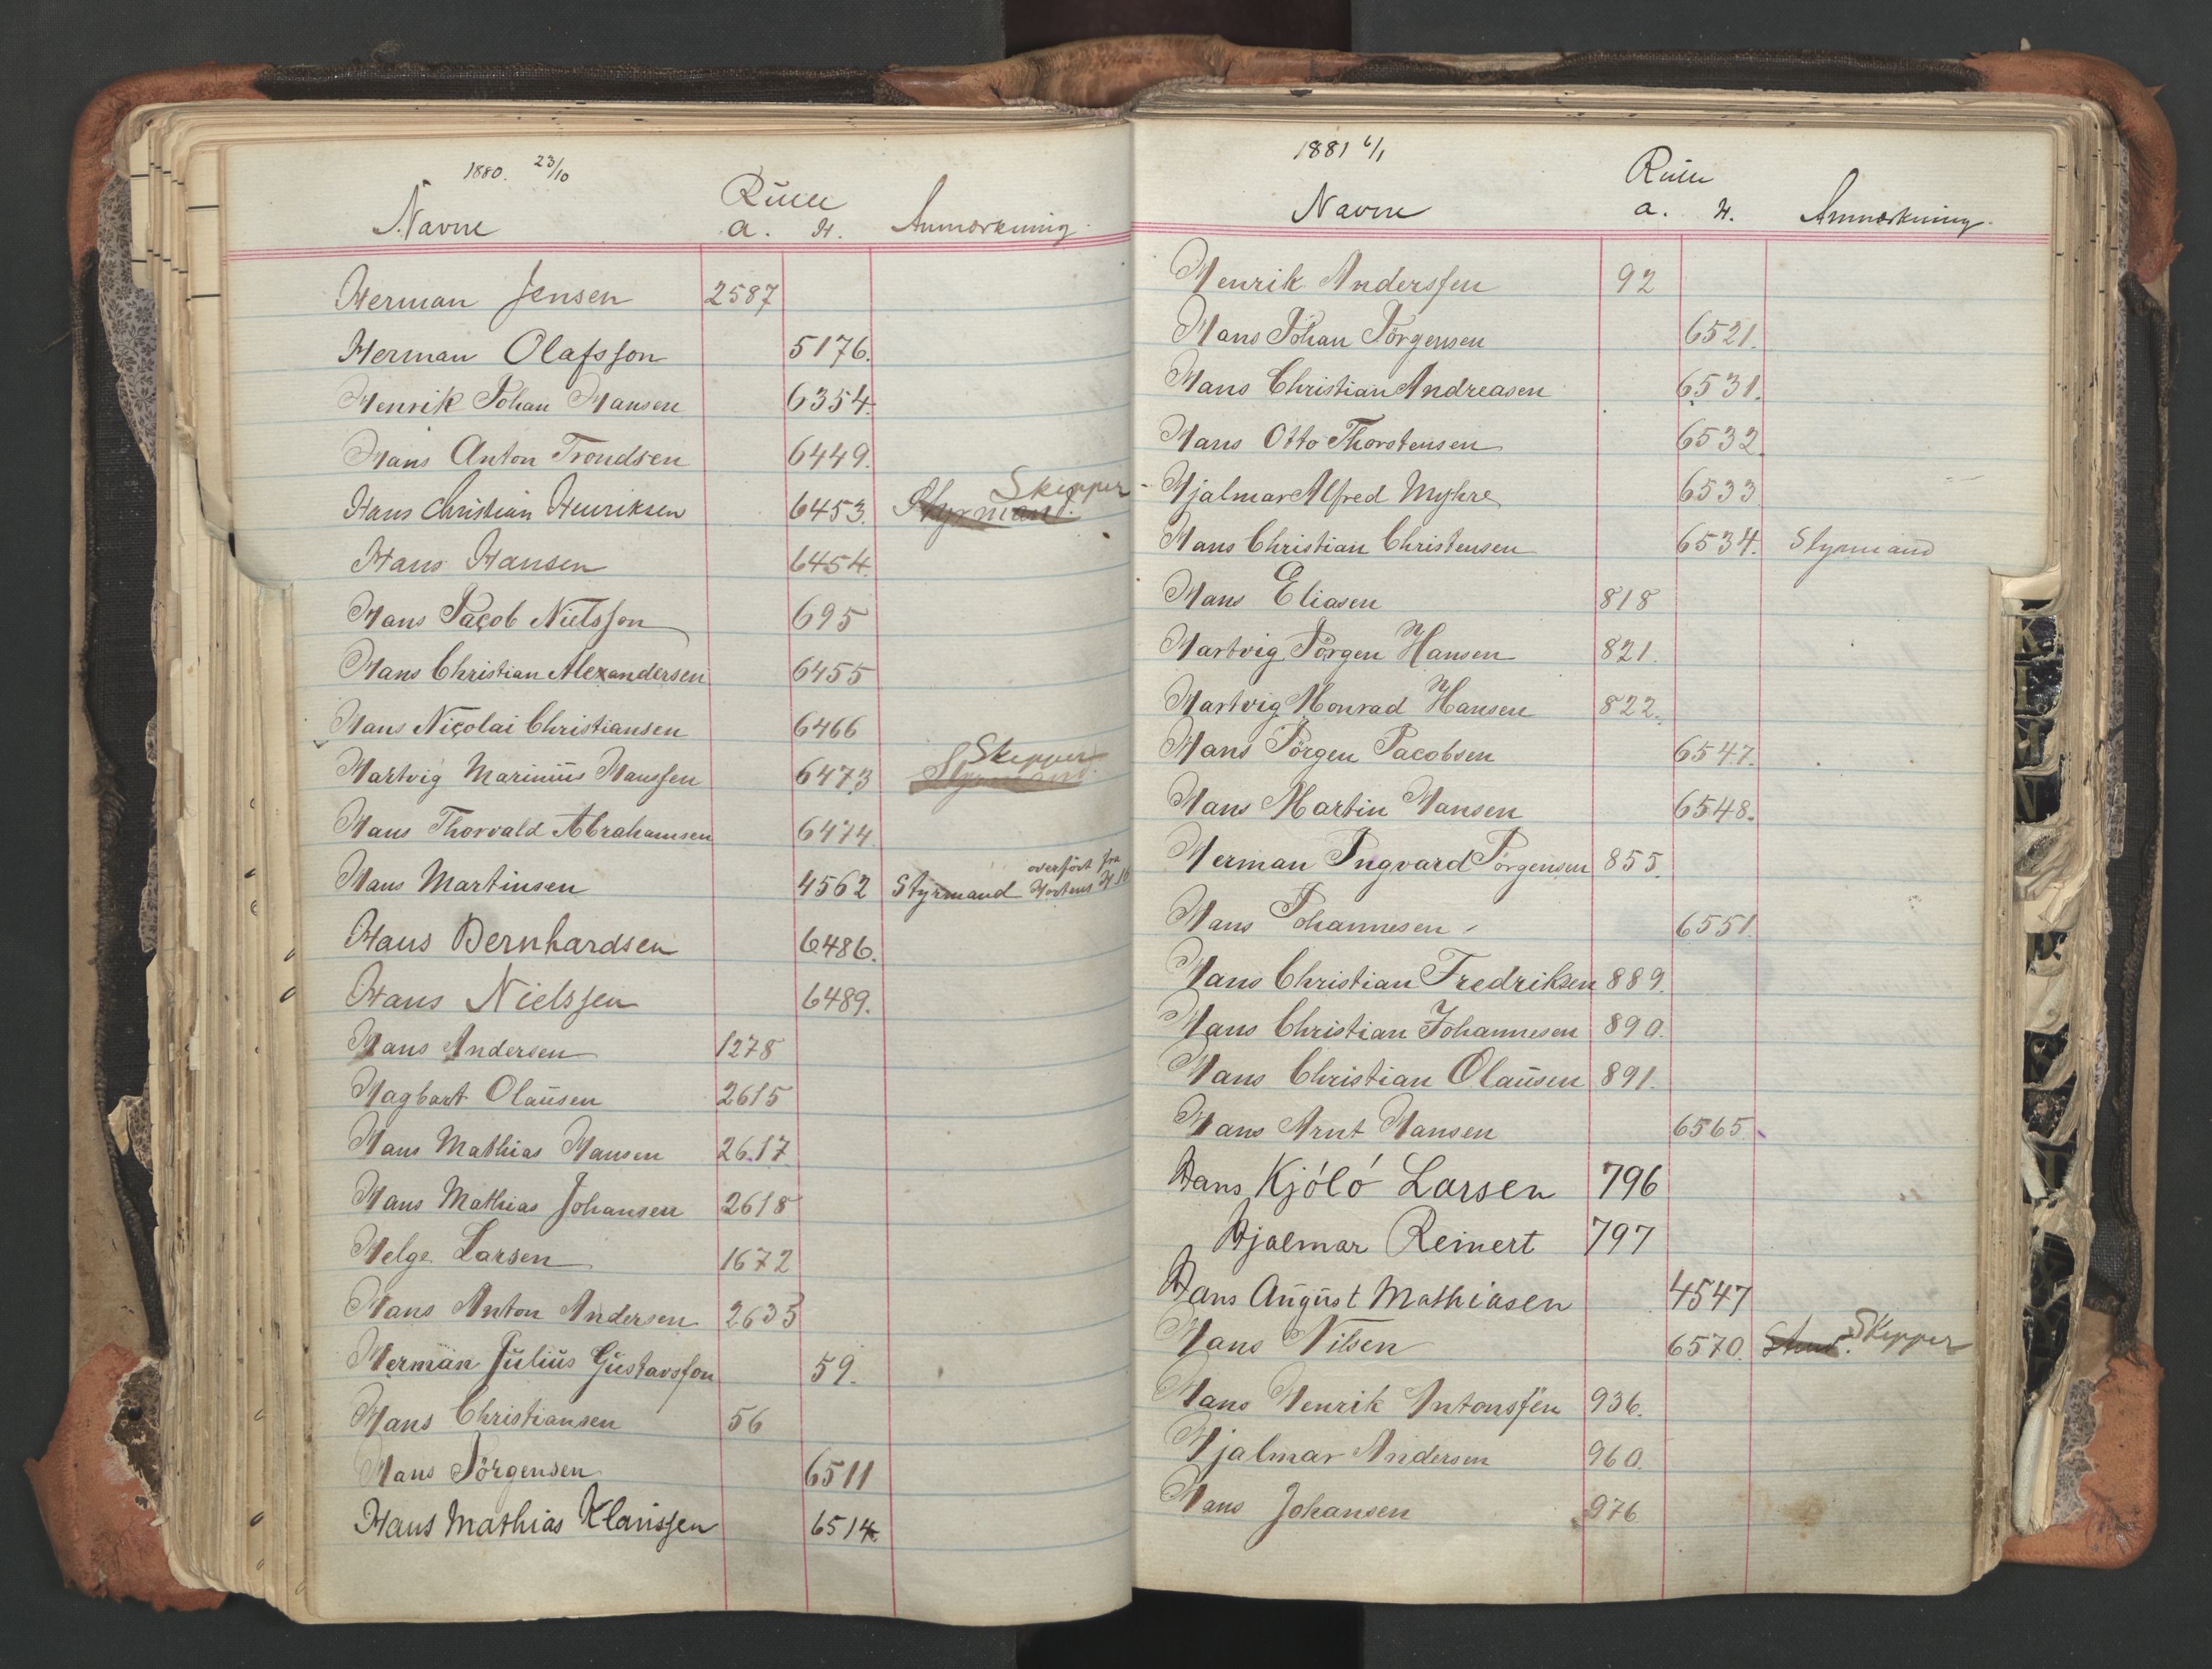 1880. 23/10
Rulle
Navne a. H. Anmærkning
Herman Jensen 2587
Herman Olafsson 5176.
Henrik Johan Hansen 6354.
Hans Anton Trondsen 6449.
Skipper
Hans Christian Henriksen 6453. Styrmand.
Hans Hansen 6454.
Hans Jacob Nielsson 695
Hans Christian Alexandersen 6455
Hans Nicolai Christiansen 6466
Skipper
Hartvig Marinius Hanssen 6473 Styrmand.
Hans Thorvald Abrahamsen 6474.
overført fra
Hans Martinsen 4562 Styrmand Hortens H 16
Hans Bernhardsen 6486.
Hans Nielssen 6489.
Hans Andersen 1278
Hagbart Olausen 2615
Hans Mathias Hansen 2617
Hans Mathias Johansen 2618
Helge Larsen 1672
Hans Anton Andersen 2635
Herman Julius Gustavsson 59.
Hans Christiansen 56
Hans Jörgensen 6511
Hans Mathias Klaussen 6514
1881 6/1
Rulle
Navne a. H. Anmærkning.
Henrik Anderssen 92
Hans Johan Jörgensen 6521.
Hans Christian Andreasen 6531.
Hans Otto Thorstensen 6532.
Hjalmar Alfred Myhre 6533
Hans Christian Christensen 6534. Styrmand
Hans Eliasen 818
Hartvig Jörgen Hansen 821.
Hartvig Monrad Hansen 822.
Hans Jörgen Jacobsen 6547.
Hans Martin Hansen 6548.
Herman Ingvard Jörgensen 855.
Hans Johannesen 6551.
Hans Christian Fredriksen 889.
Hans Christian Johannesen 890.
Hans Christian Olausen 891.
Hans Arnt Hansen 6565
Hans Kjóló Larsen 796
Hjalmar Reinert 797
Hans August Mathiasen 4547
Hans Nilsen 6570. Skipper
Hans Henrik Antonssen 936.
Hjalmar Andersen 960.
Hans Johansen 976